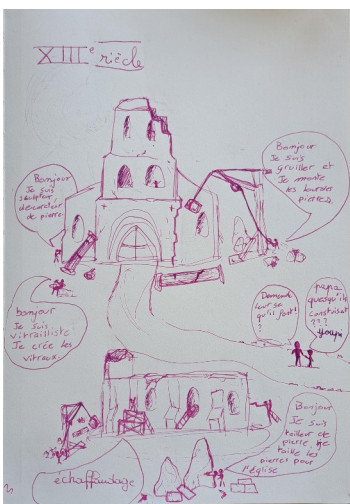 XIIIe siècle
Bonjour
Je suis
sculpteur
décorateur
de pierre
Bonjour
Je suis
grutier et
Je monte
les lourdes
pierres
bonjour
Je suis
vitrailliste
Je crée les
vitraux
Demande
leur se
qu'il font!
?
papa
quesqu'il
construiset
???
Bonjour
Je suis
tailleur de
pierre, je
taille les
pierres pour
l'église
echaffaudage